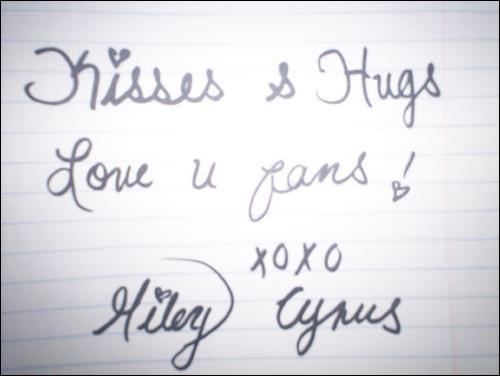 Kisses & Hugs
Love u fans!
xoxo
Miley Cyrus